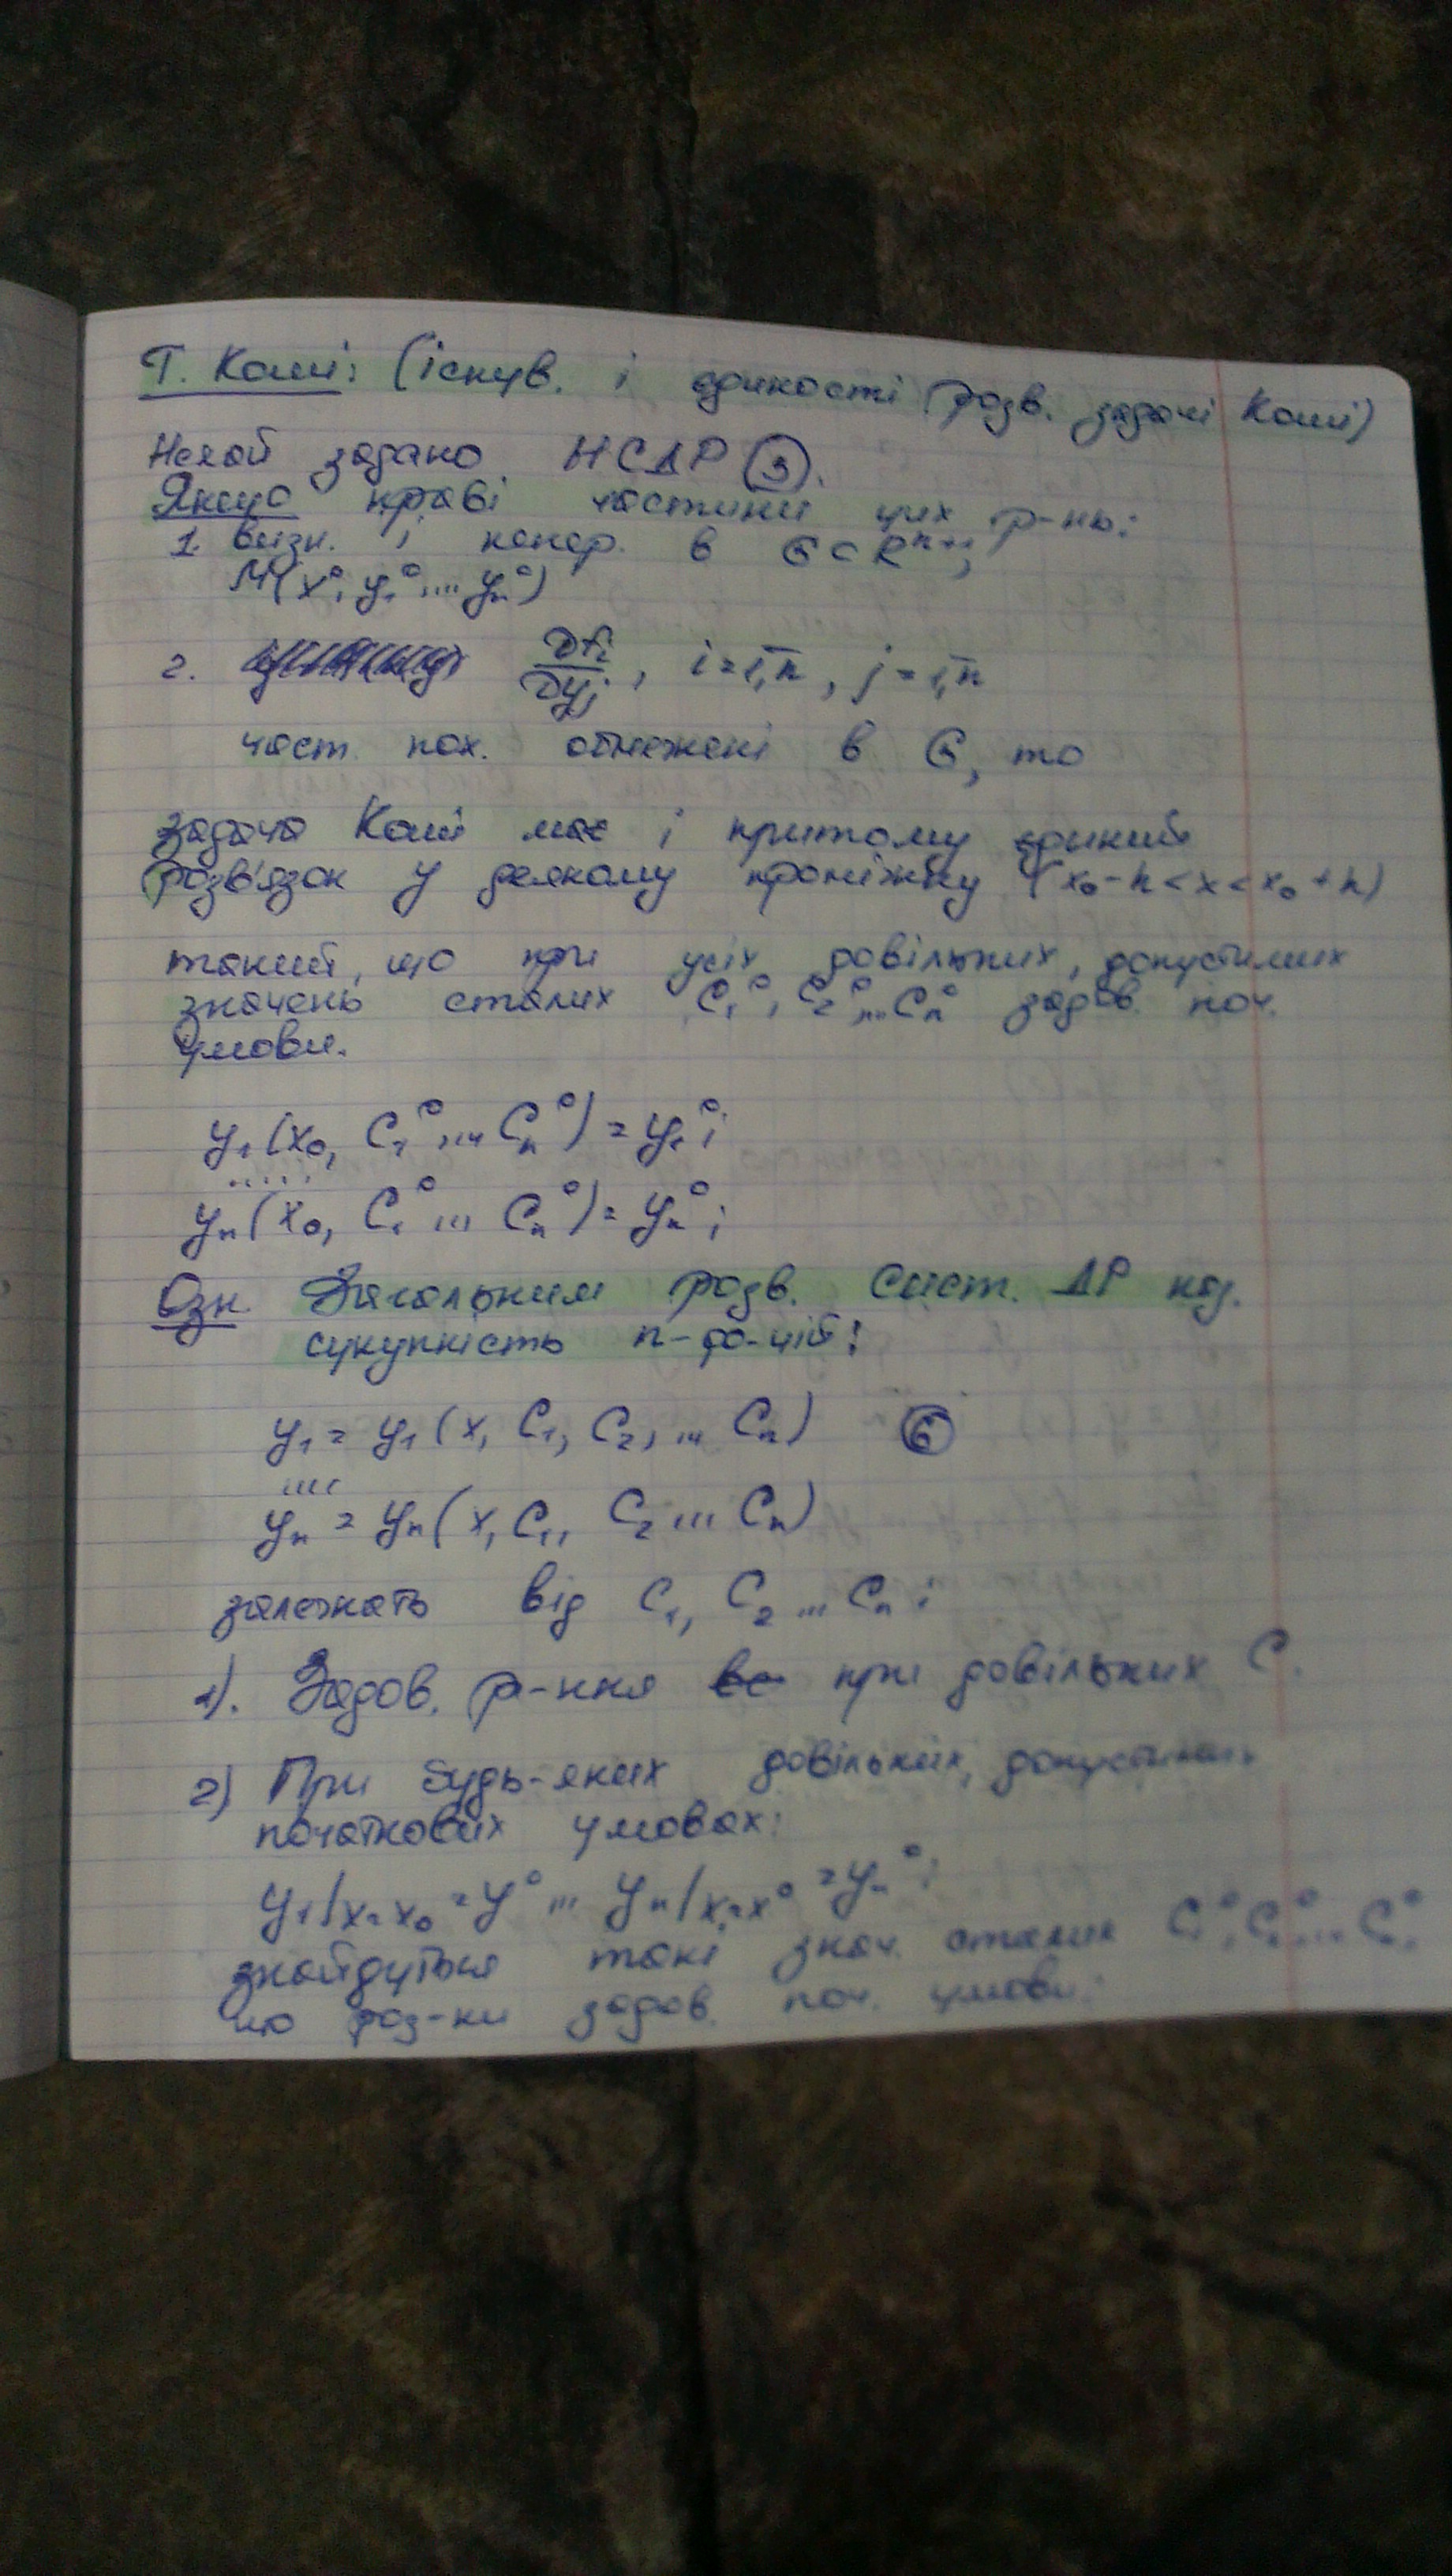 Т. Коші: (існув. і єдиності розв. задачі Коші)
Нехай задано НСДР (3).
Якщо праві частини цих р-нь:
1. визн. і непер. в G ⊂ R^{n+1};
M(x⁰, y₁⁰, ... yₙ⁰)
2. ∂fᵢ/∂yⱼ, i = 1,n̅, j = 1,n̅
част. пох. обмежені в G, то
задача Коші має і притому єдиний
розв'язок у деякому проміжку (x₀ - h < x < x₀ + h)
такий, що при усіх довільних, допустимих
значень сталих C₁⁰, C₂⁰, ... Cₙ⁰ задов. поч.
умови.
y₁(x₀, C₁⁰, ... Cₙ⁰) = y₁⁰;
.....
yₙ(x₀, C₁⁰ ... Cₙ⁰) = yₙ⁰;
Озн. Загальним розв. Сист. ДР наз.
сукупність n-ф-цій:
y₁ = y₁(x, C₁, C₂, ... Cₙ) (6)
....
yₙ = yₙ(x, C₁, C₂ ... Cₙ)
залежать від C₁, C₂ ... Cₙ:
1). Задов. р-ння при довільних C.
2) При будь-яких довільних, допустимих
початкових умовах:
y₁|x=x₀ = y⁰ ... yₙ|x=x⁰ = yₙ⁰;
знайдуться такі знач. сталих C₁⁰, C₂⁰, ... Cₙ⁰,
що роз-ки задов. поч. умови.